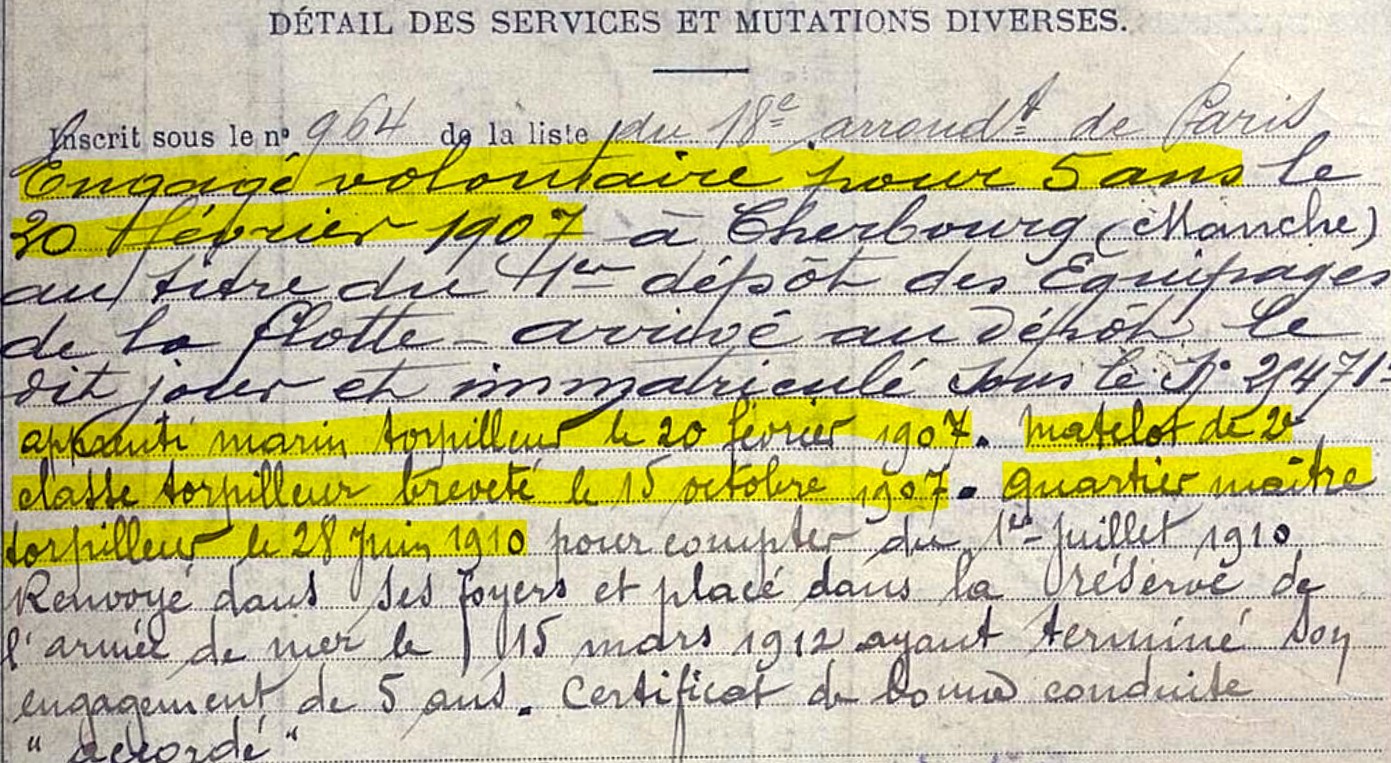 DÉTAIL DES SERVICES ET MUTATIONS DIVERSES.
Inscrit sous le n° 964 de la liste du 18e arrondt de Paris
Engagé volontaire pour 5 ans le
20 février 1907 à Cherbourg (Manche)
au titre du 1er dépôt des Équipages
de la flotte - arrivé au dépôt le
dit jour et immatriculé sous le N°
apprenti marin torpilleur le 20 février 1907. matelot de 2e
classe torpilleur breveté le 15 octobre 1907. quartier maître
torpilleur le 28 Juin 1910 pour compter du 1er Juillet 1910
Renvoyé dans ses foyers et placé dans la réserve de
l'armée de mer le 15 mars 1912 ayant terminé son
engagement de 5 ans. Certificat de bonne conduite
"accordé"